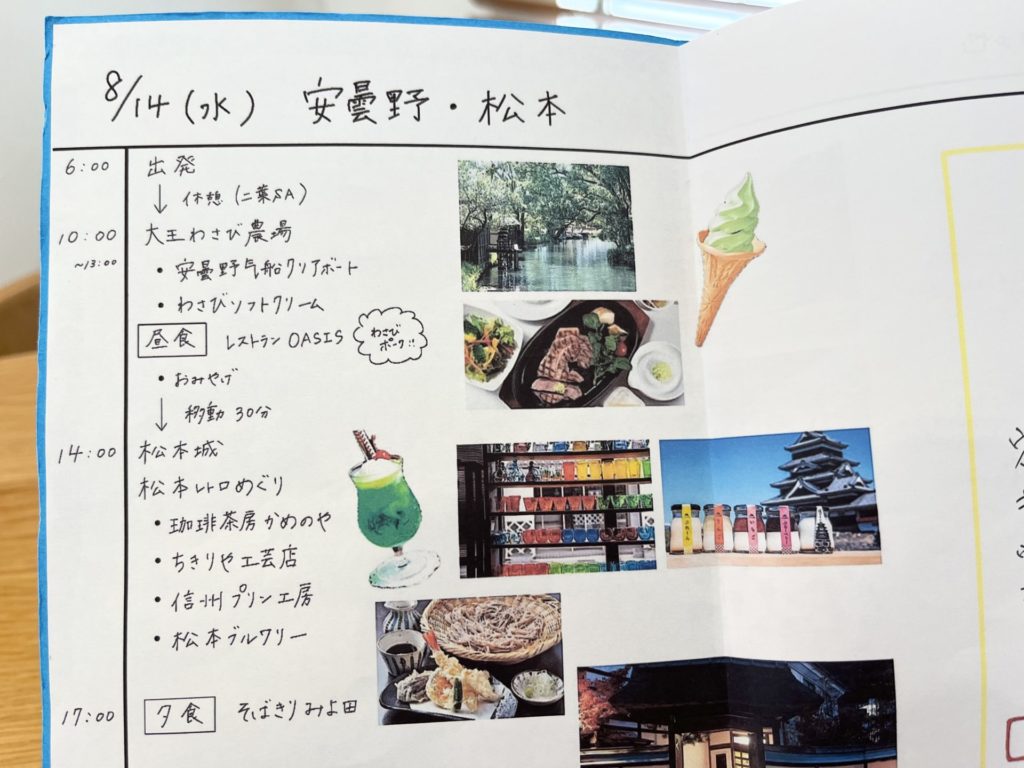 8/14(水) 安曇野・松本
6:00 出発
↓ 休憩(二葉SA)
10:00 大王わさび農場
~13:00
・安曇野気船クリアボート
・わさびソフトクリーム
昼食 レストラン OASIS
わさび
ポーク!!
・おみやげ
↓ 移動 30分
14:00 松本城
松本レトロめぐり
・珈琲茶房かめのや
・ちきりや工芸店
・信州プリン工房
・松本ブルワリー
17:00 夕食 そばきり みよ田